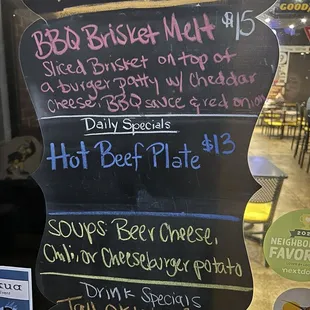 BBQ Brisket Melt $15
Sliced Brisket on top of
a burger patty w/ Cheddar
Cheese, BBQ sauce & red onion
Daily Specials
Hot Beef Plate $13
SOUPS: Beer Cheese,
Chili, or Cheeseburger potato
Drink Specials
Tall
GOOD
NEIGHBORH
FAVOR
nextdo